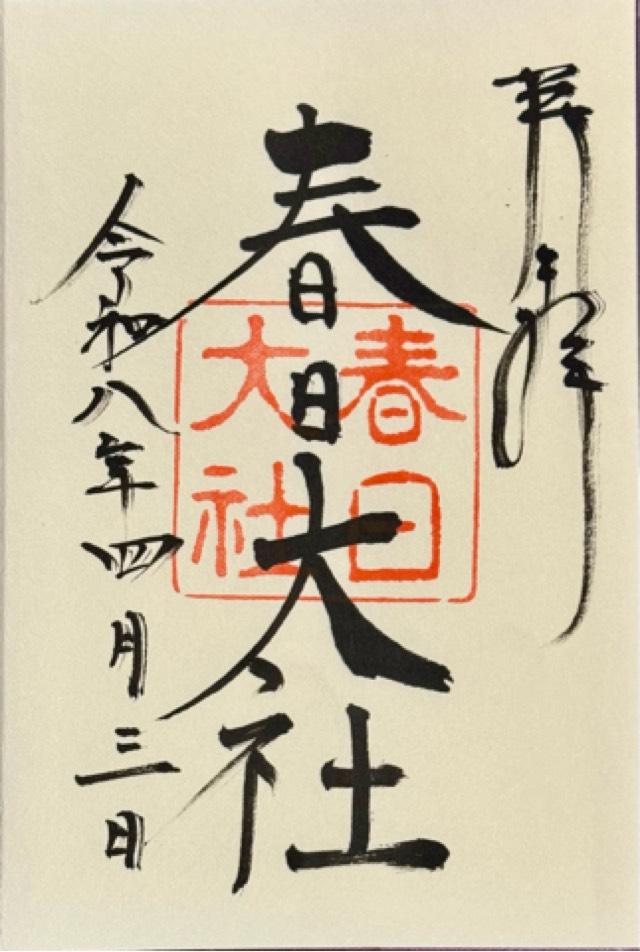 奉拝
春日大社
春日
大社
令和八年四月三日